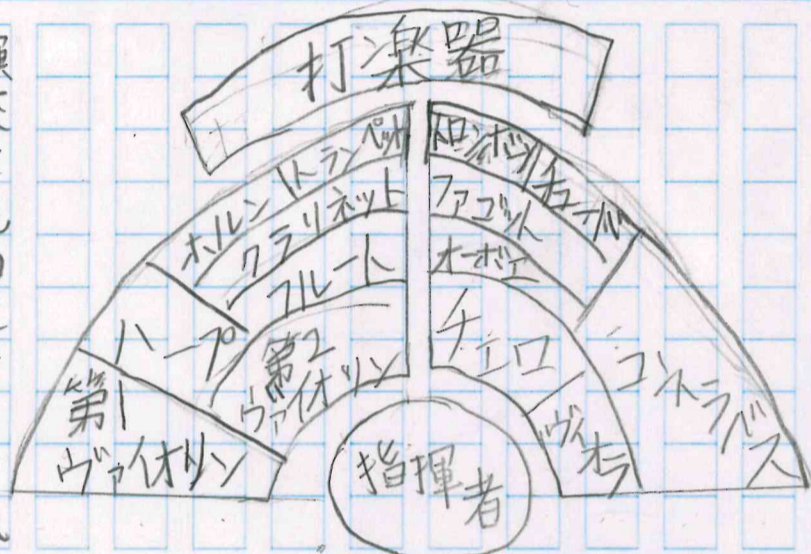 打楽器
ホルン
トランペット
トロンボン
チューバ
クラリネット
ファゴット
フルート
オーボエ
ハープ
第2
ヴァイオリン
チェロ
コントラバス
第1
ヴァイオリン
ヴィオラ
指揮者